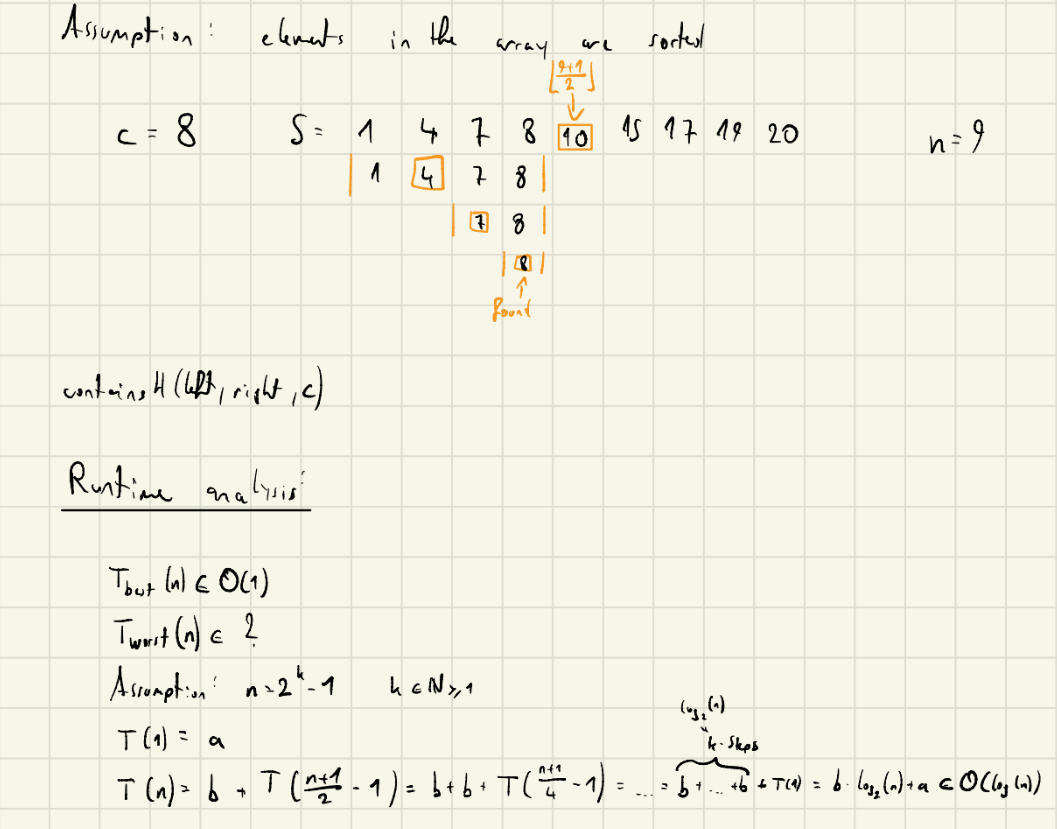 Assumption: elements in the array are sorted
⌊(9+1)/2⌋
c = 8 S = 1 4 7 8 10 15 17 19 20 n = 9
| 1 4 7 8 |
| 7 8 |
| 8 |
found
containsH(left, right, c)
Runtime analysis:
T_best(n) ∈ O(1)
T_worst(n) ∈ ?
Assumption: n = 2^k - 1 k ∈ N≥1
T(1) = a
log₂(n)
k-steps
T(n) = b + T((n+1)/2 - 1) = b + b + T((n+1)/4 - 1) = ... = b + ... + b + T(1) = b · log₂(n) + a ∈ O(log(n))